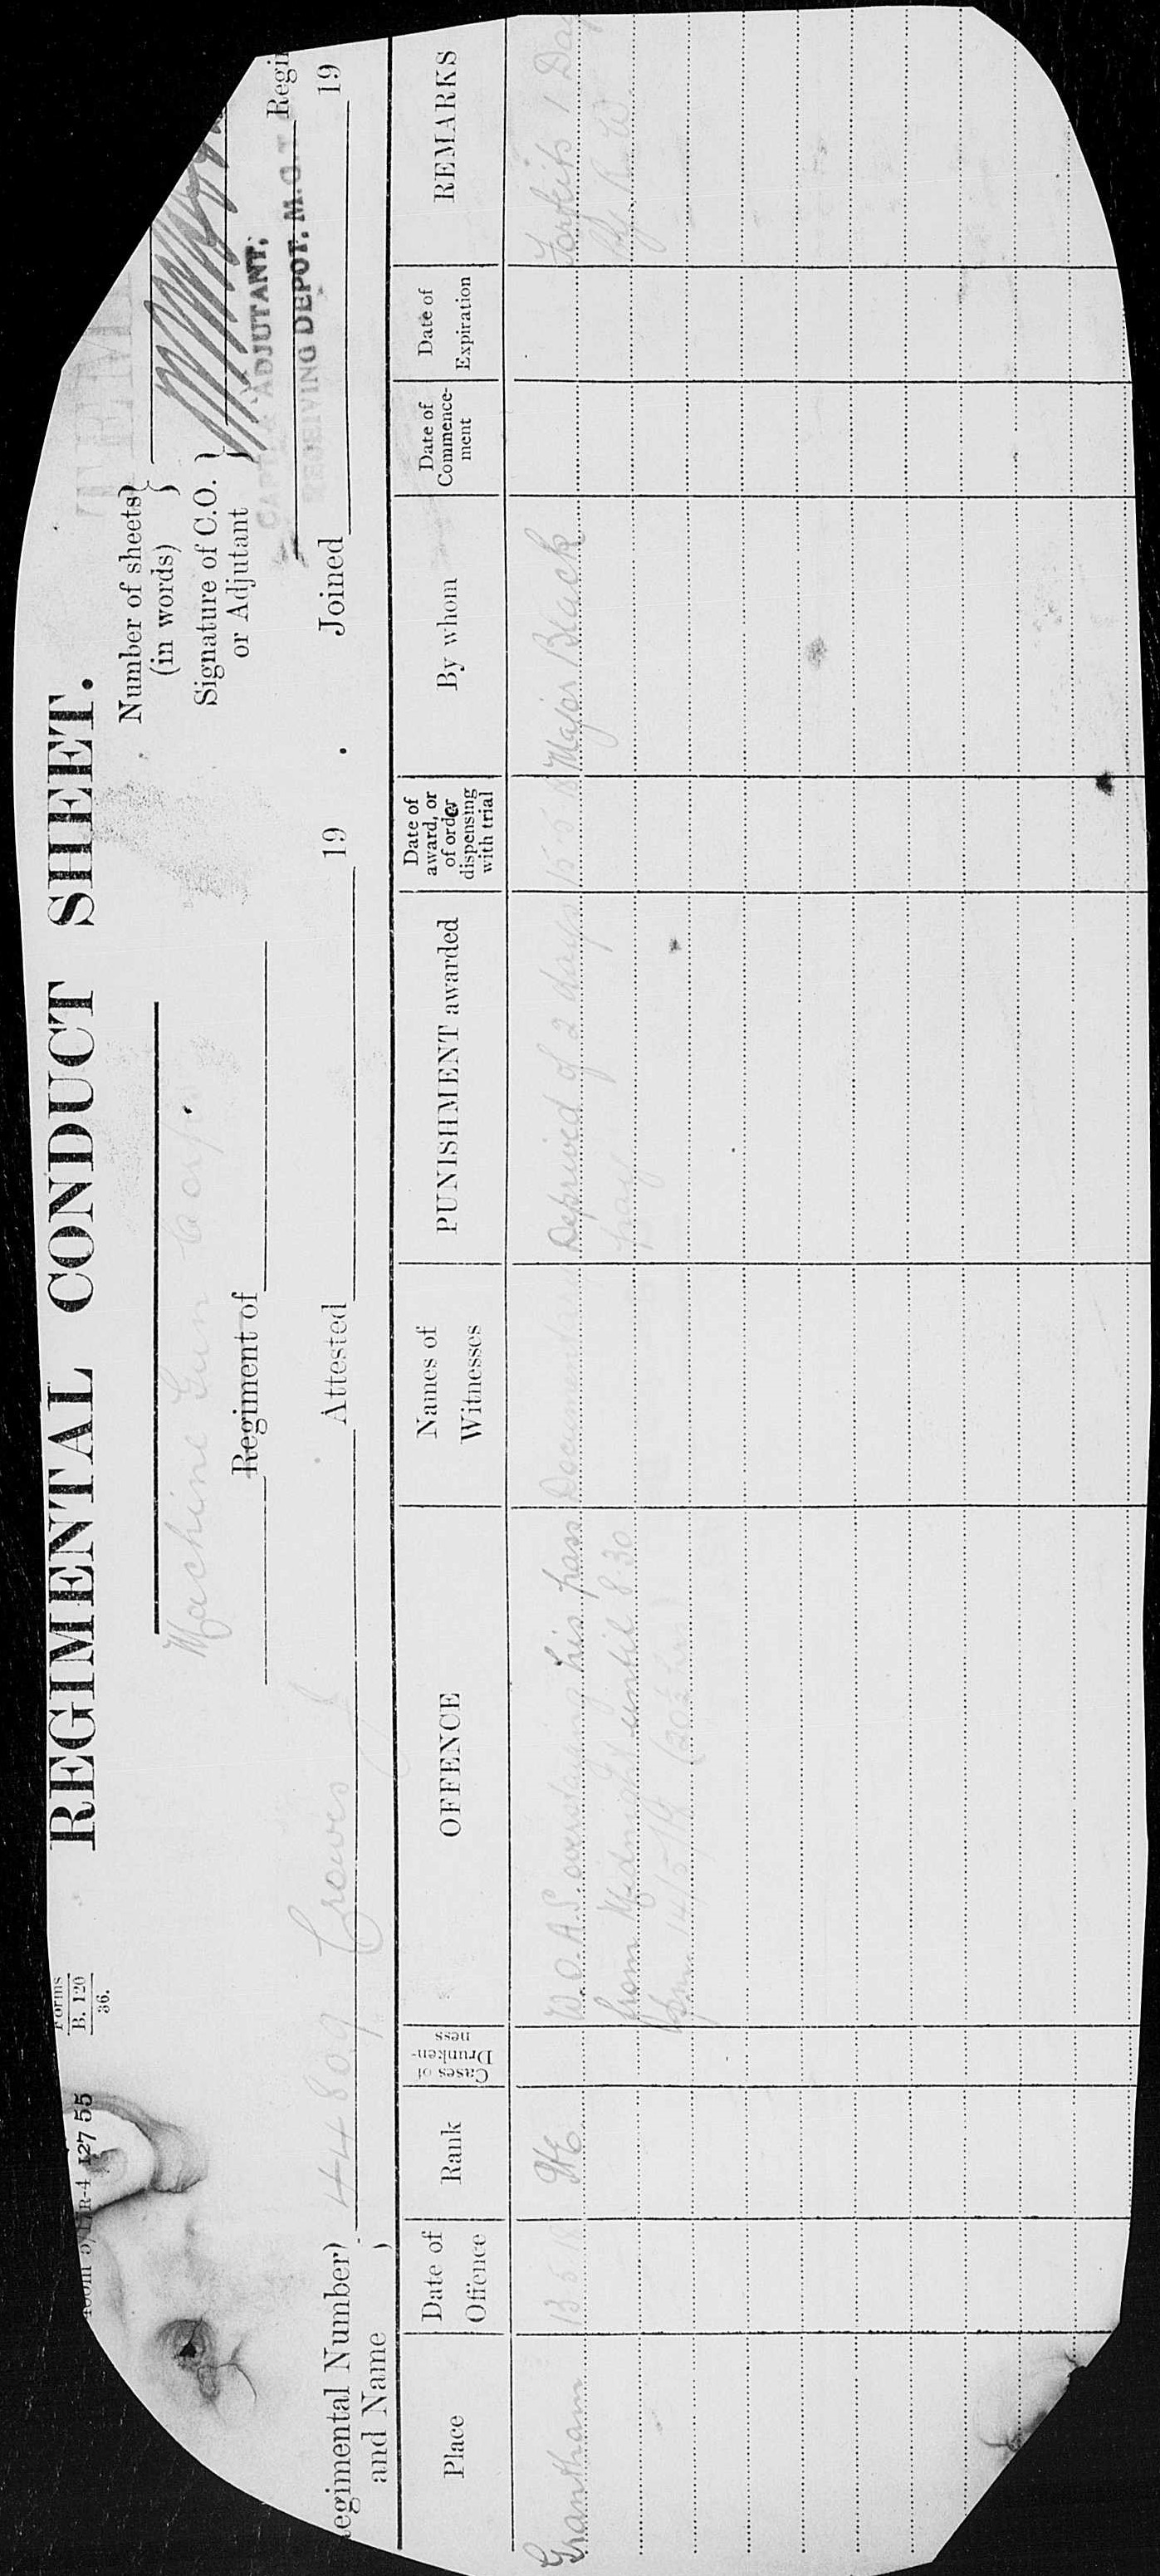 Forms
B. 120
36.
REGIMENTAL CONDUCT SHEET.
Number of sheets
(in words)
Machine Gun Corps.
Signature of C.O.
or Adjutant
ADJUTANT,
Regiment of
RECEIVING DEPOT. M.G.T.
Regi
Regimental Number
and Name
44809 Crowes J
Attested 19 .
Joined 19
Place
Date of Offence
Rank
Cases of Drunken-ness
OFFENCE
Names of Witnesses
PUNISHMENT awarded
Date of award, or of order dispensing with trial
By whom
Date of Commence-ment
Date of Expiration
REMARKS
Grantham 13 5 18 Pte W.O.A.S. overstaying his pass Documentary Deprived of 2 days 15 5 18 Major Black Forfeits 1 Day
from Midnight until 8-30 pay Pay R.W.
14/5/18 (20½ hrs)